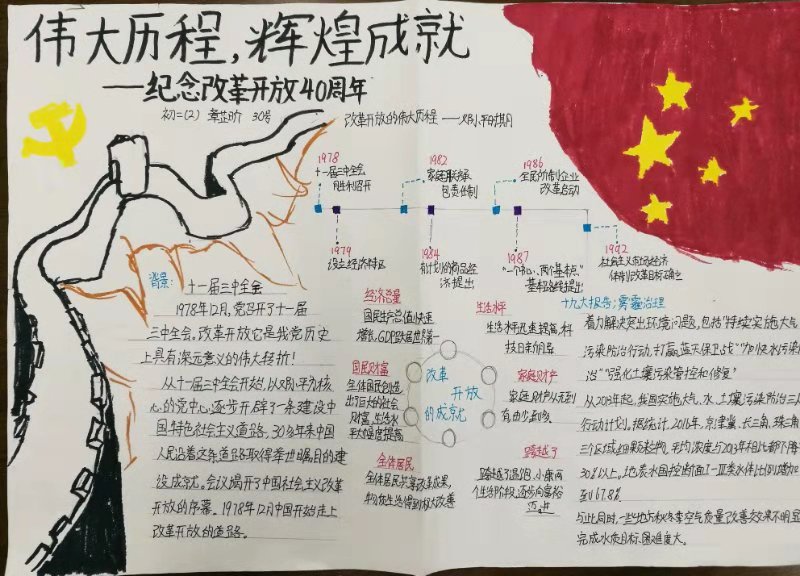 伟大历程,辉煌成就
——纪念改革开放40周年
初二(2) 30号
改革开放的伟大历程——邓小平时期
1978
十一届三中全会
胜利召开
1982
家庭联产承
包责任制
1986
全民所有制企业
改革启动
1979
设立经济特区
1984
有计划的商品经
济提出
1987
"一个中心、两个基本点"
基本路线提出
1992
社会主义市场经济
体制改革目标确立
背景:
十一届三中全会
1978年12月,党召开了十一届
三中全会。改革开放它是我党历史
上具有深远意义的伟大转折!
从十一届三中全会开始,以邓小平为核
心的党中心,逐步开辟了一条建设中
国特色社会主义道路。30多年来中国
人民沿着这条道路取得举世瞩目的建
设成就。会议揭开了中国社会主义改革
开放的序幕。1978年12月中国开始走上
改革开放的道路。
经济总量
国民生产总值快速
增长,GDP跃居世界第一
国民财富
全体国民创造
出了巨大的社会
财富,生活水
平大幅度提高
全体居民
全体居民共享改革成果,
物质生活得到极大改善
改革
开放
的成就
生活水平
生活水平迅速提高,科
技日新月异
家庭财产
家庭财产从无到
有,由少到多
跨越了
跨越了温饱、小康两
个生活阶段,逐步向富裕
迈进
十九大报告:雾霾治理
着力解决突出环境问题,包括"持续实施大气
污染防治行动,打赢蓝天保卫战""加快水污染防
治""强化土壤污染管控和修复"
从2013年起,我国实施大气、水、土壤污染防治三大
行动计划。据统计,2016年,京津冀、长三角、珠三角
三个区域细颗粒物,平均浓度与2013年相比都下降
30%以上。地表水国控断面I-III类水体比例增加
至67.8%
与此同时,一些地方秋冬季空气质量改善效果不明显
完成水质目标困难度大。